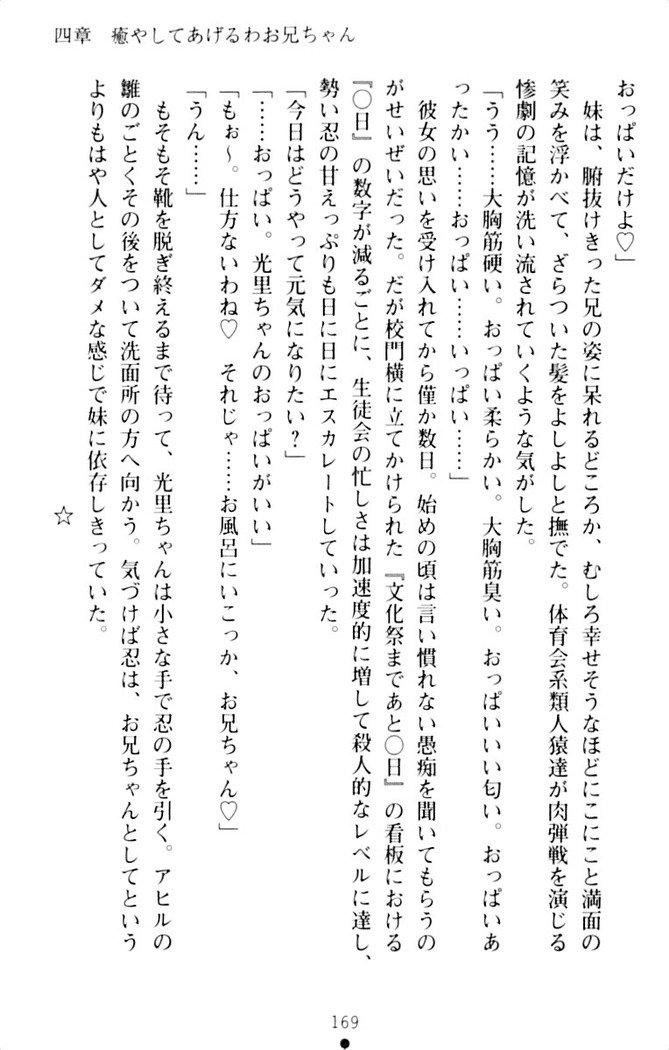 四章　癒やしてあげるわお兄ちゃん
おっぱいだけよ♡」
　妹は、腑抜けきった兄の姿に呆れるどころか、むしろ幸せそうなほどにこにこと満面の
笑みを浮かべて、ざらついた髪をよしよしと撫でた。体育会系類人猿達が肉弾戦を演じる
惨劇の記憶が洗い流されていくような気がした。
「うう……大胸筋硬い。おっぱい柔らかい。大胸筋臭い。おっぱいいい匂い。おっぱいあ
ったかい……おっぱい……いっぱい……」
　彼女の思いを受け入れてから僅か数日。始めの頃は言い慣れない愚痴を聞いてもらうの
がせいぜいだった。だが校門横に立てかけられた『文化祭まであと〇日』の看板における
『〇日』の数字が減るごとに、生徒会の忙しさは加速度的に増して殺人的なレベルに達し、
勢い忍の甘えっぷりも日に日にエスカレートしていった。
「今日はどうやって元気になりたい？」
「……おっぱい。光里ちゃんのおっぱいがいい」
「もぉ～。仕方ないわね♡　それじゃ……お風呂にいこっか、お兄ちゃん♡」
「うん……」
　もそもそ靴を脱ぎ終えるまで待って、光里ちゃんは小さな手で忍の手を引く。アヒルの
雛のごとくその後をついて洗面所の方へ向かう。気づけば忍は、お兄ちゃんとしてという
よりもはや人としてダメな感じで妹に依存しきっていた。
☆
169